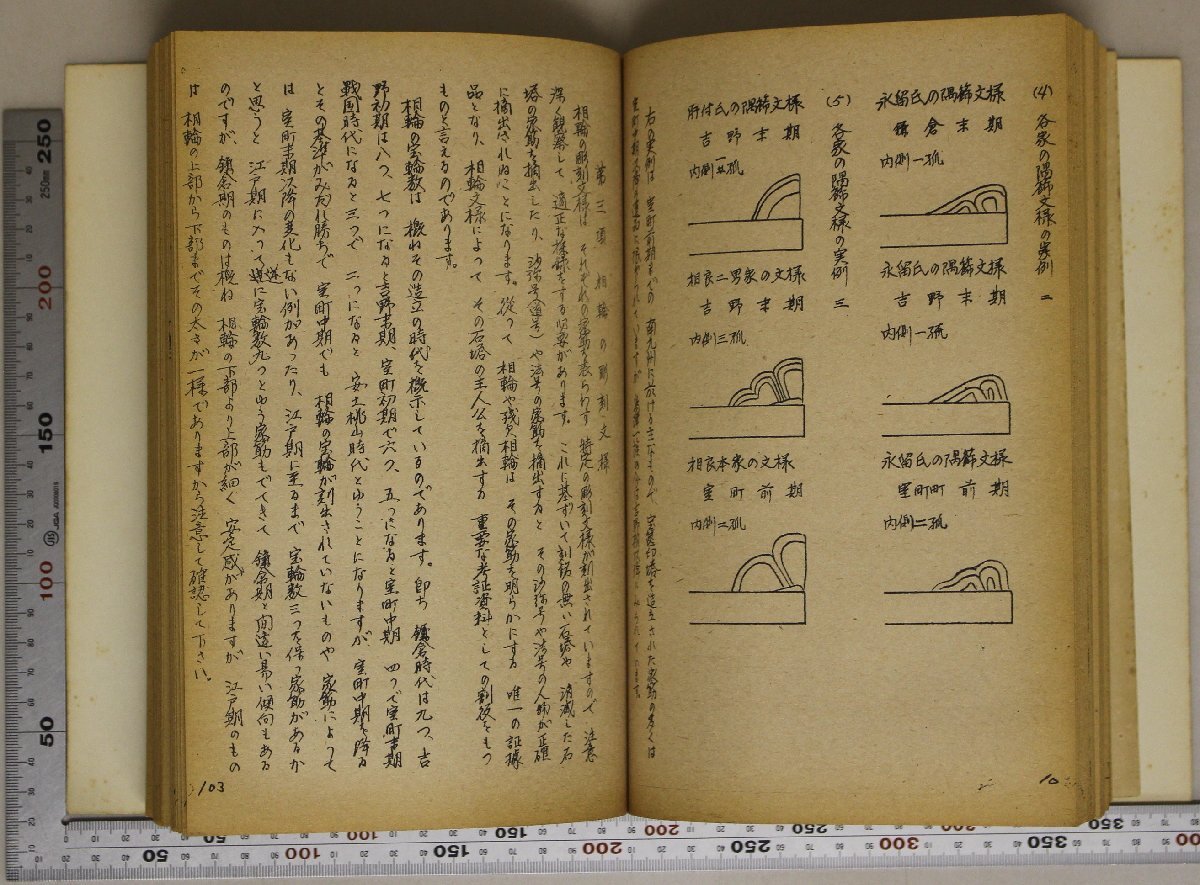 (4) 各家の隅飾文様の実例 二
永留氏の隅飾文様
鎌倉末期
内側一孤
永留氏の隅飾文様
吉野末期
内側一孤
永留氏の隅飾文様
室町町前期
内側二孤
(5) 各家の隅飾文様の実例 三
肝付氏の隅飾文様
吉野末期
内側一孤
相良二男家の文様
吉野末期
内側三孤
相良本家の文様
室町前期
内側二孤
右の実例は 室町前期までの 南九州に於ける主なもので 宝篋印塔を造立された家筋の多くは
第三項 相輪の彫刻文様
相輪の彫刻文様は それぞれの家筋を表らわす 特定の彫刻文様が刻出されていますので、注意
深く観察して、適正な採録をする必要があります。これに基ずいて刻銘の無い石塔や 消滅した石
塔の家筋を摘出したり、沙弥号(道号)や法号の家筋を摘出すると その沙弥号や法号の人物が正確
に摘出されれることになります。従つて 相輪や残欠相輪は その家筋を明らかにする 唯一の証據
品となり、相輪文様によって その石塔の主人公を摘出する 重要な考証資料としての割役をもつ
ものと言えるのであります。
相輪の宝輪数は 概ねその造立の時代を概示しているのであります。即ち 鎌倉時代は九つ、吉
野初期は八つ、七つになると吉野末期、室町初期で六つ、五つになると室町中期 四つで室町末期
戦国時代になると三つで 二つになると 安土桃山時代とゆうことになりますが、室町中期を降る
とその基準がみだれ勝ちで 室町中期でも 相輪の宝輪が刻出されていないものや 家筋によって
は 室町末期以降の変化もない例があったり、江戸期に至るまで 宝輪数三つを保つ家筋があるか
と思うと 江戸期に入って 逆に宝輪数九つとゆう家筋もでてきて 鎌倉期と間違い易い傾向もある
のですが、鎌倉期のものは概ね 相輪の下部より上部が細く 安定感がありますが 江戸期のもの
は 相輪の上部から下部までその太さが一様でありますから注意して確認して下さい。
103
10
JIS JQA
250 200 150 100 50
50 100 150 200 250 300 350